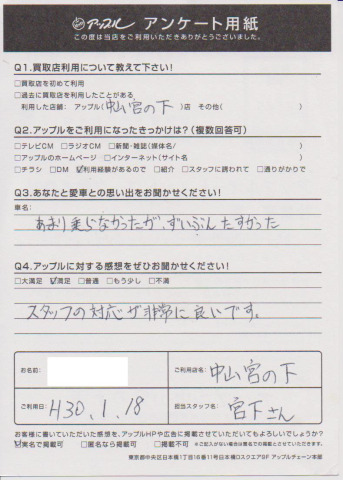 アップル アンケート用紙
この度は当店をご利用いただきありがとうございました。
Q1.買取店利用について教えて下さい!
□買取店を初めて利用
□過去に買取店を利用したことがある
利用した店舗: アップル(中山宮の下)店 その他( )
Q2.アップルをご利用になったきっかけは?(複数回答可)
□テレビCM □ラジオCM □新聞・雑誌(媒体名/ )
□アップルのホームページ □インターネット(サイト名 )
□チラシ □DM ☑利用経験があるので □紹介 □スタッフに誘われて □通りがかりで
Q3.あなたと愛車との思い出をお聞かせください!
車名:
あまり乗らなかったが、ずいぶんたすかった
Q4.アップルに対する感想をぜひお聞かせください!
□大満足 ☑満足 □普通 □もう少し □不満
スタッフの対応が非常に良いです。
お名前:
ご利用店名: 中山宮の下
ご利用日: H30.1.18
担当スタッフ名: 宮下さん
お客様に書いていただいた感想を、アップルHPや広告に掲載させていただいてもよろしいでしょうか?
☑実名で掲載可 □匿名なら掲載可 □掲載不可 ※ご記入がない場合は匿名での掲載とさせていただきます。
東京都中央区日本橋1丁目16番11号日本橋Dスクエア8F アップルチェーン本部